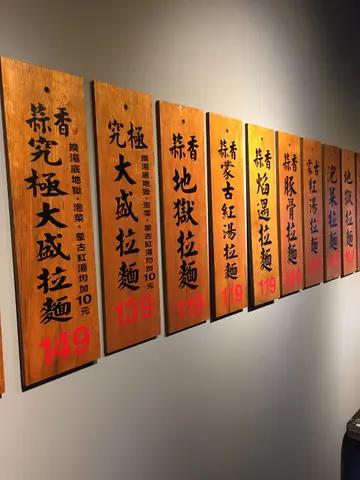 蒜香
究極大盛拉麵
換湯底地獄、泡菜、蒙古紅湯均加10元
149
究極
大盛拉麵
換湯底地獄、泡菜、蒙古紅湯均加10元
139
蒜香
地獄拉麵
119
蒜香
蒙古紅湯拉麵
119
蒜香
焰遇拉麵
119
蒜香
豚骨拉麵
蒙古
紅湯拉麵
泡菜拉麵
地獄拉麵